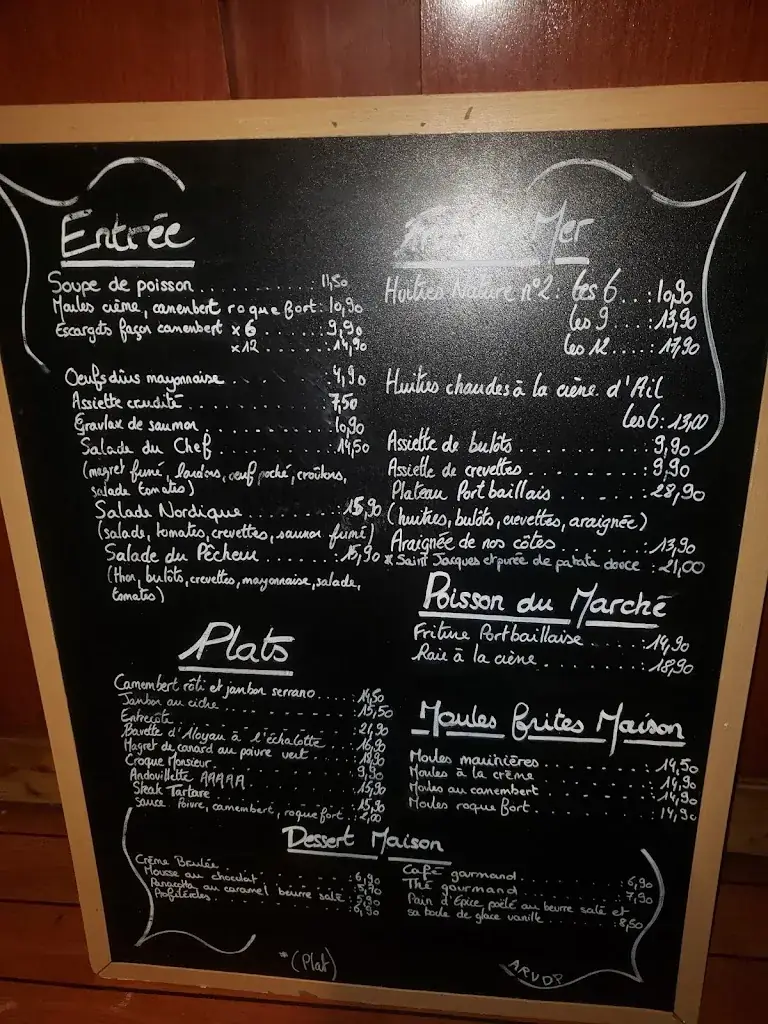 Entrée
Soupe de poisson .......... 11,50
Moules crème, camembert roquefort: 10,90
Escargots façon camembert x 6 ....... 9,90
x12 ....... 14,90
Oeufs dûrs mayonnaise .......... 4,90
Assiette crudité .......... 7,50
Gravlax de saumon .......... 10,90
Salade du Chef .......... 14,50
(magret fumé, lardons, oeuf poché, croûtons,
salade tomates)
Salade Nordique .......... 15,90
(salade, tomates, crevettes, saumon fumé)
Salade du Pêcheur .......... 15,90
(thon, bulots, crevettes, mayonnaise, salade,
tomates)
Plats
Camembert rôti et jambon serrano ....: 14,50
Jambon au cidre .......... : 15,50
Entrecôte .......... : 21,90
Bavette d'Aloyau à l'échalotte ....: 16,90
Magret de canard au poivre vert ....:
Croque Monsieur .......... : 9,90
Andouillette AAAAA .......... : 15,90
Steak Tartare .......... : 15,90
sauce: Poivre, camembert, roquefort .: 2,00
Mer
Huîtres Nature n°2: les 6 ...: 10,90
les 9 ....: 13,90
les 12 ....: 17,90
Huîtres chaudes à la crème d'Ail
les 6: 13,00
Assiette de bulots .......... : 9,90
Assiette de crevettes .......... : 9,90
Plateau Portbaillais .......... : 28,90
(huîtres, bulots, crevettes, araignée)
Araignée de nos côtes .......... : 13,90
* Saint Jacques et purée de patate douce : 21,00
Poisson du Marché
Friture Portbaillaise .......... : 14,90
Raie à la crème .......... : 18,90
Moules frites Maison
Moules marinières .......... : 14,50
Moules à la crème .......... : 14,90
Moules au camembert .......... : 14,90
Moules roquefort .......... : 14,90
Dessert Maison
Crème Brulée
Mousse au chocolat .......... : 6,90
Panacotta au caramel beurre salé : 5,70
Profiteroles .......... : 5,90
: 6,50
Café gourmand .......... : 6,90
Thé gourmand .......... : 7,90
Pain d'Épice poêlé au beurre salé et
sa boule de glace vanille .......... : 8,50
*(Plat)
ARVDP